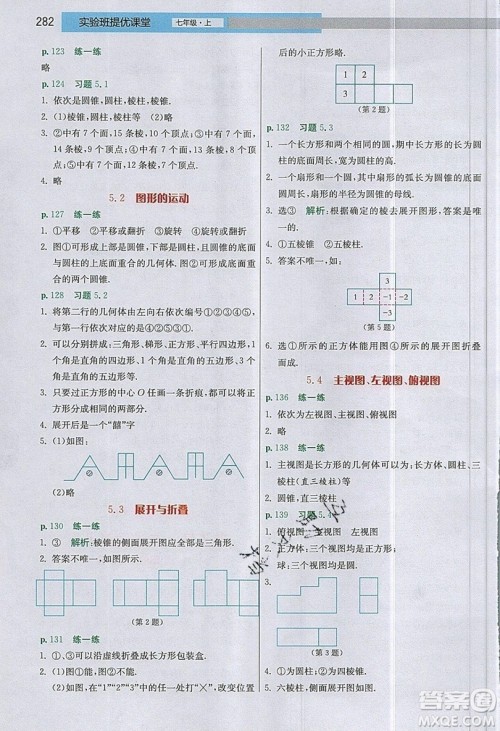 282 实验班提优课堂 七年级·上
p.123 练一练
略
p.124 习题5.1
1. 依次是圆锥,圆柱,棱柱,棱锥.
2. (1)棱锥,圆柱,棱柱等 (2)略
3. ②中有7个面,15条棱,10个顶点;⑤中有7个面,12条棱,7个顶点;⑥中有9个面,16条棱,9个顶点.
4. 略
5.2 图形的运动
p.127 练一练
1. ①平移 ②平移 ③旋转 ④旋转
2. 图①可形成上底面是六边形,下底面和上底面重合的几何体;图②可形成圆柱的上底面和下底面重合的几何体.
p.128 习题5.2
1. 第二行的几何体由左向右依次为①④②③⑤,与第一行依次对应的为①②③④⑤.
2. 可以分别拼成:三角形、梯形、正方形、四边形、1个角是直角的五边形、1个角是直角的四边形、1个角是直角的四边形等.
3. 只要过正方形的中心O任意画一条折痕,都可以将正方形分成形状、大小相同的两部分.
4. 展开后有一个“囍”字
5. (1)如图:
(2)略
5.3 展开与折叠
p.130 练一练
1. ③ 解析:棱锥的侧面展开图应全部是三角形.
2. 答案不唯一,如图:
(第2题)
p.131 练一练
1. ①、③可以沿虚线折叠成长方形包装盒.
2. (1)图①能,图②不能.
(2)如图,在图②中的任一处打“×”,改变位置后的小正方形上.
1 2
3
(第2题)
p.132 习题5.3
1. 一个长方形和两个大小相同的圆,其中长方形的一条边长为圆的周长.
2. 一个扇形和一个圆,其中扇形的弧长为圆的周长,扇形的半径为圆锥的母线.
3. 选③ 解析:根据确定的棱去展开图形,答案是唯一的.
4. ①五棱锥 ②五棱柱
5. 答案不唯一,如图:
1 2 -1 -2
-3
(第5题)
6. 选①所示的正方体能用图④所示的展开图折叠而成.
5.4 主视图、左视图、俯视图
p.136 练一练
1. 依次为左视图、主视图、俯视图
2. 略
p.138 练一练
1. 主视图是长方形的几何体可以为:长方体、圆柱、三棱柱(直三棱柱)等
2. 圆锥、直三棱柱
p.139 习题5.4
1. 俯视图 主视图 左视图
2. 正方体:三个视图均是正方形;
球:三个视图均是圆.
3. 如图:
4. 如图:
5. 六棱柱,如图:
答案圈
MXQE.COM